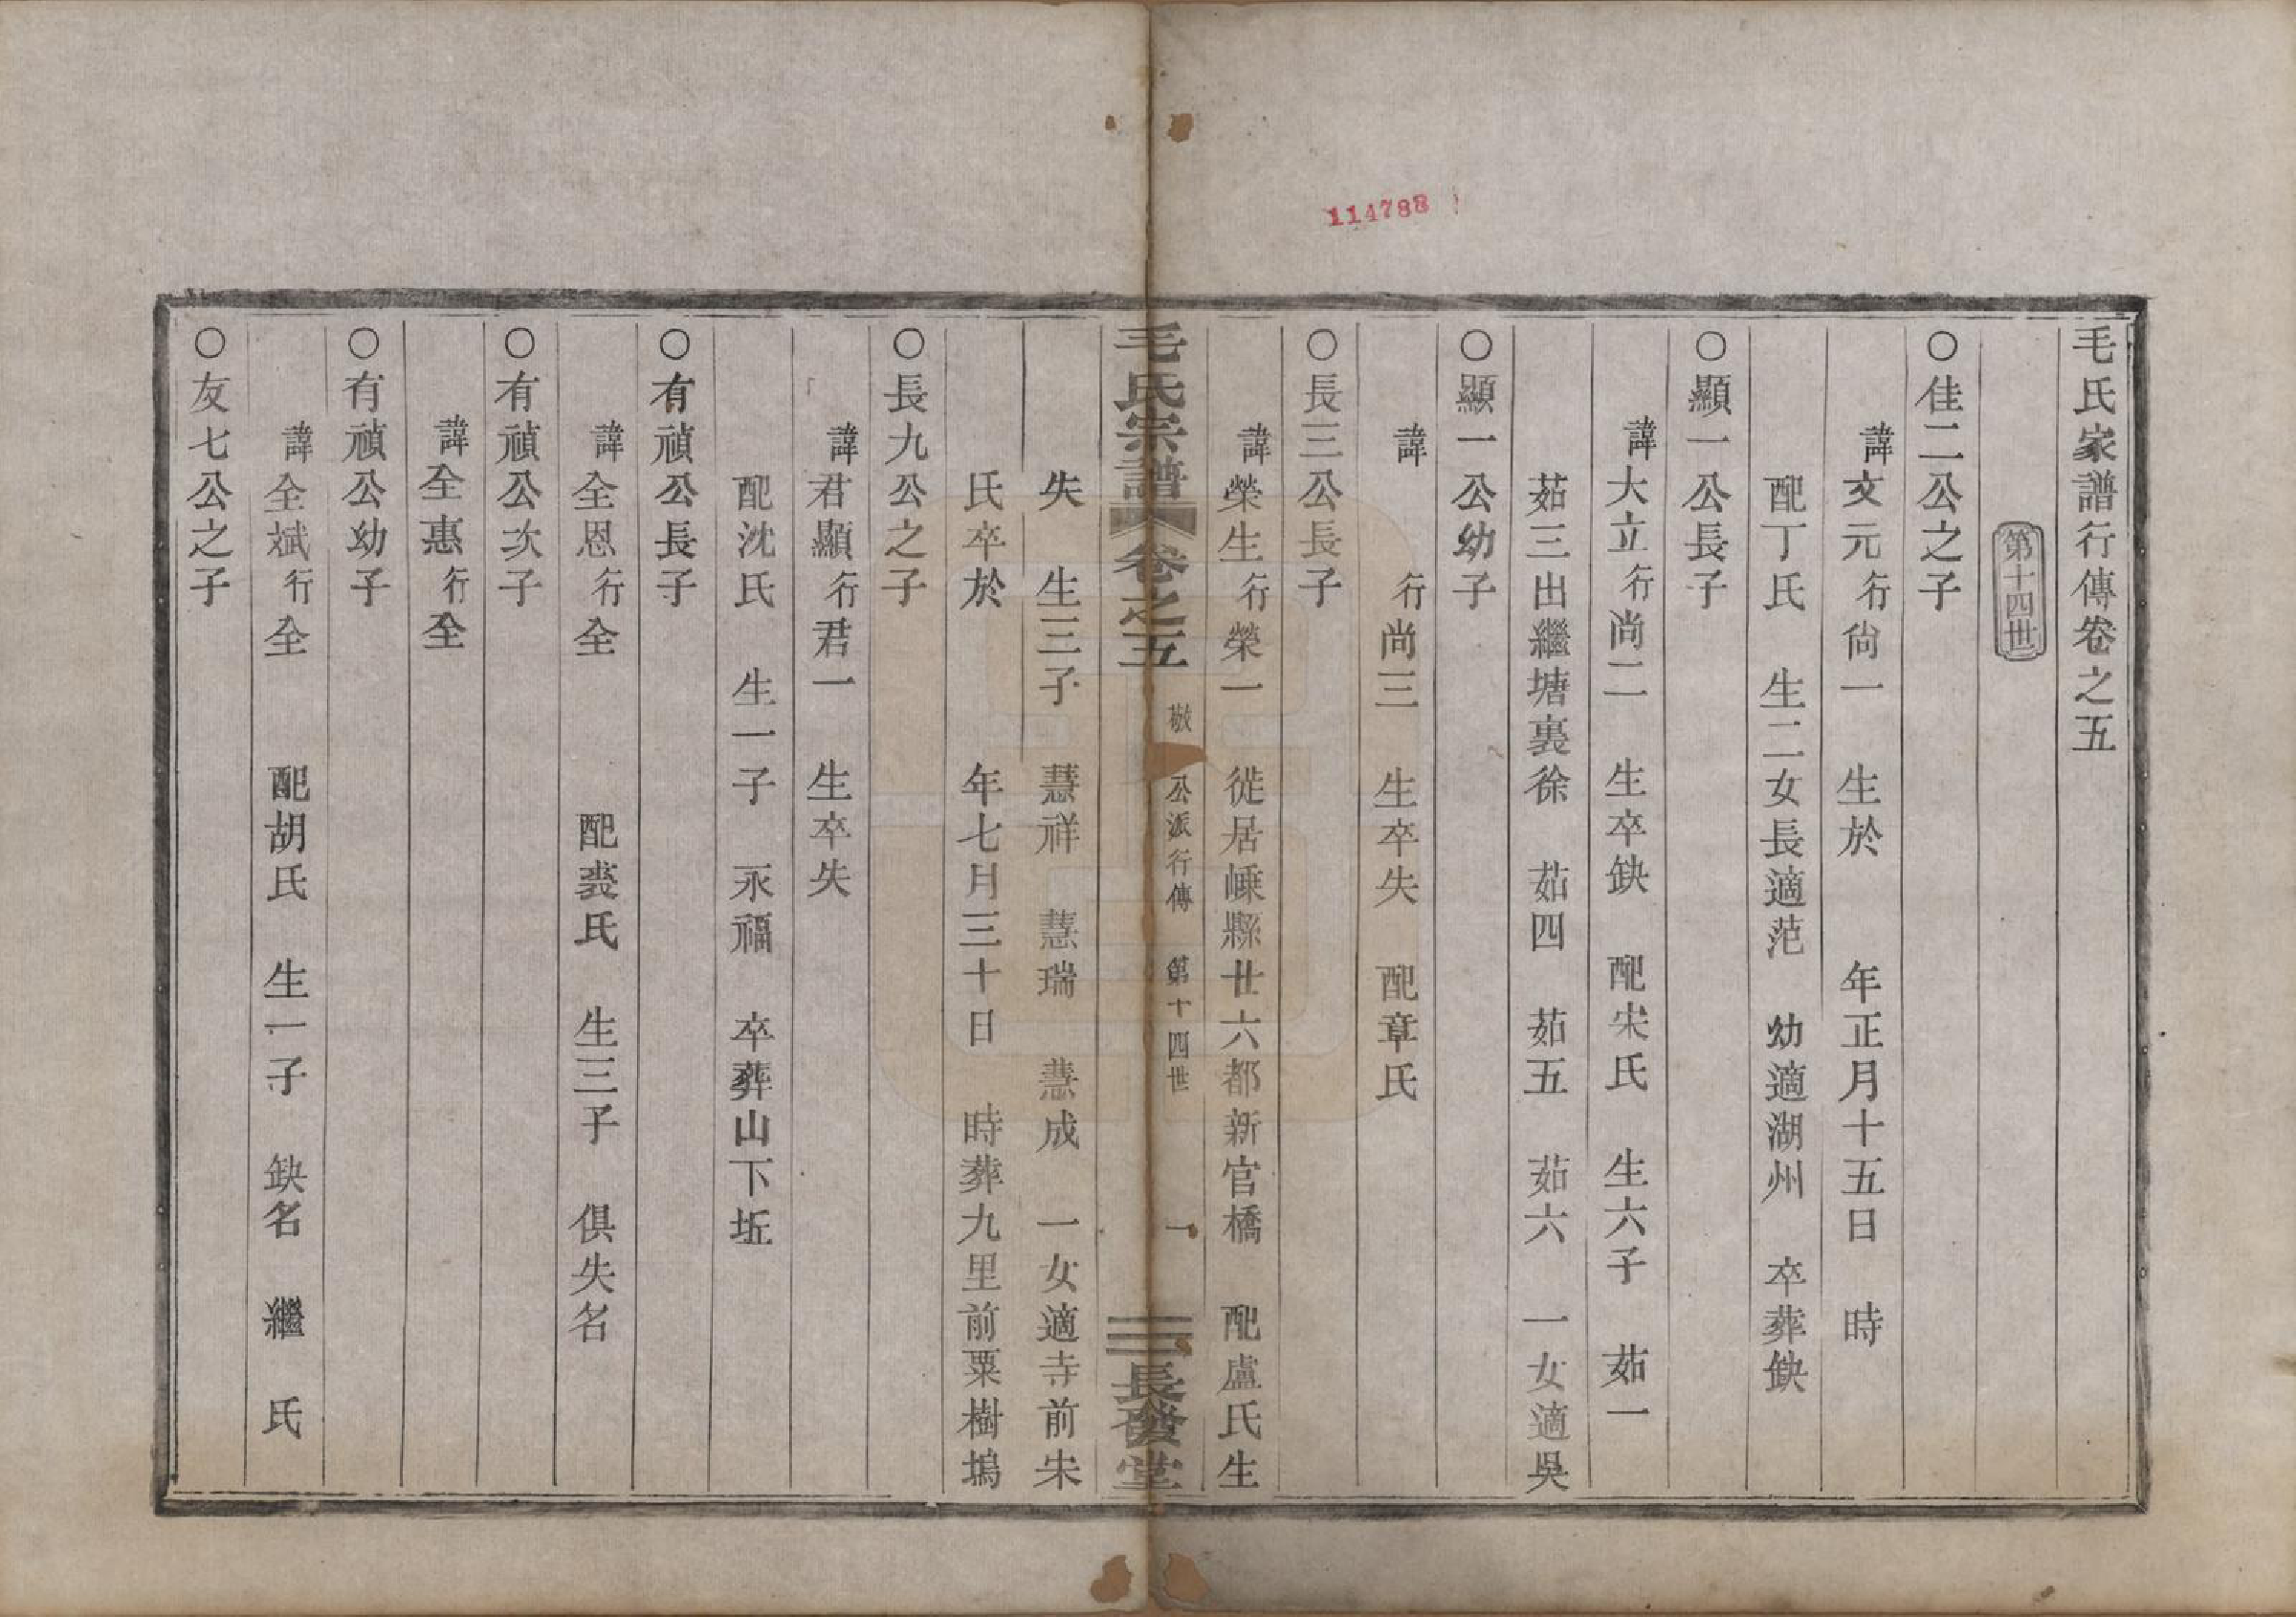 114788
毛氏家譜行傳卷之五
第十四世
〇佳二公之子
諱文元行尙一　生於　　年正月十五日　時
配丁氏　生二女長適范　幼適湖州　卒葬缺
〇顯一公長子
諱大立行尚二　生卒缺　配宋氏　生六子　茹一
茹三出繼塘裏徐　茹四　茹五　茹六　一女適吳
〇顯一公幼子
諱　　行尚三　生卒失　配章氏
〇長三公長子
諱榮生行榮一　徙居嵊縣廿六都新官橋　配盧氏生
毛氏宗譜　卷之五　敬　公派行傳　第十四世　一　長發堂
失　生三子　慧祥　慧瑞　慧成　一女適寺前朱
氏卒於　　　年七月三十日　時葬九里前粟樹塢
〇長九公之子
諱君顯行君一　生卒失
配沈氏　生一子　永福　卒葬山下坵
〇有禎公長子
諱全恩行全　　　配裘氏　生三子　俱失名
〇有禎公次子
諱全惠行全
〇有禎公幼子
諱全斌行全　　配胡氏　生一子　缺名　繼　氏
〇友七公之子